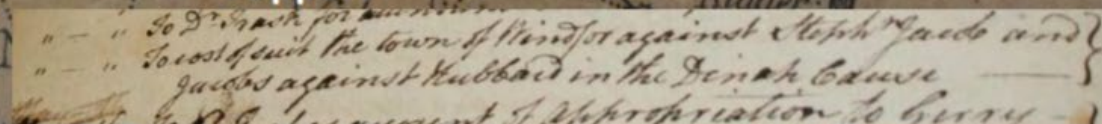 " — " To Dr. Trask for
" — " To cost of suit the town of Windsor against Stephn Jacob and
Jacobs against Hubbard in the Dinah Cause
of appropriation to